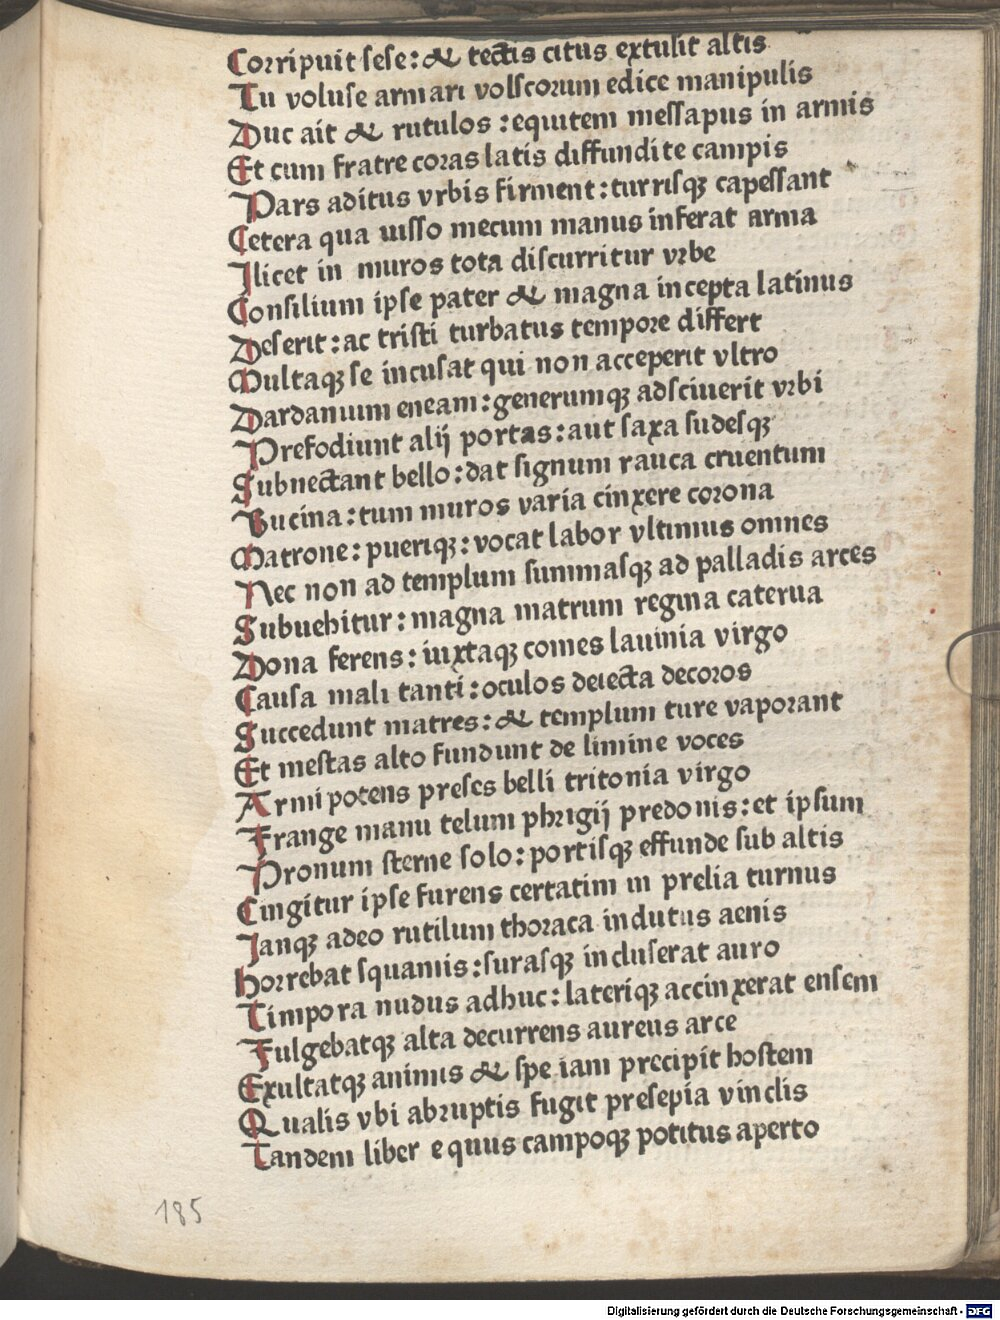 Corripuit sese: & tectis citus extulit altis
Tu voluse armari volscorum edice manipulis
Duc ait & rutulos : equitem messapus in armis
Et cum fratre coras latis diffundite campis
Pars aditus vrbis firment: turrisqꝫ capessant
Cetera qua iusso mecum manus inferat arma
Ilicet in muros tota discurritur vrbe
Consilium ipse pater & magna incepta latinus
Deserit: ac tristi turbatus tempore differt
Multaqꝫ se incusat qui non acceperit vltro
Dardanium eneam: generumqꝫ adsciuerit vrbi
Prefodiunt alij portas: aut saxa sudesqꝫ
Subnectant bello: dat signum rauca cruentum
Bucina: tum muros varia cinxere corona
Matrone: pueriqꝫ: vocat labor vltimus omnes
Nec non ad templum summasqꝫ ad palladis arces
Subuehitur: magna matrum regina caterua
Dona ferens: iuxtaqꝫ comes lauinia virgo
Causa mali tanti: oculos deiecta decoros
Succedunt matres: & templum ture vaporant
Et mestas alto fundunt de limine voces
Armipotens preses belli tritonia virgo
Frange manu telum phrigij predonis: et ipsum
Pronum sterne solo: portisqꝫ effunde sub altis
Cingitur ipse furens certatim in prelia turnus
Ianqꝫ adeo rutilum thoraca indutus aenis
horrebat squamis: surasqꝫ incluserat auro
Timpora nudus adhuc: lateriqꝫ accinxerat ensem
Fulgebatqꝫ alta decurrens aureus arce
Exultatqꝫ animis & spe iam precipit hostem
Qualis vbi abruptis fugit presepia vinclis
Tandem liber equus campoqꝫ potitus aperto
185
Digitalisierung gefördert durch die Deutsche Forschungsgemeinschaft - DFG